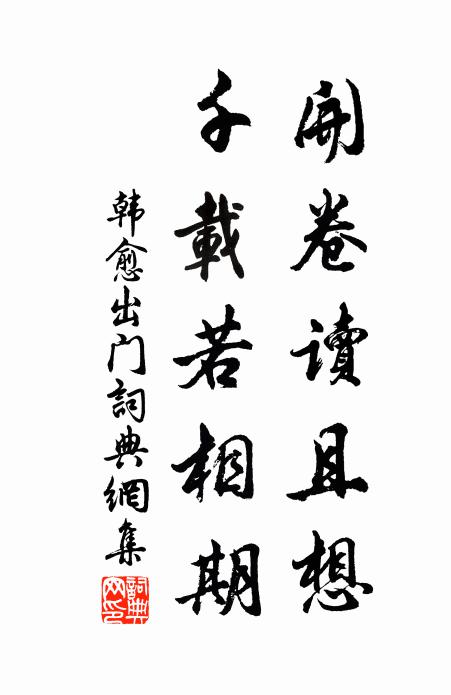 開卷讀且想
千載若相期
韩愈出门詞典網集
詞典網印